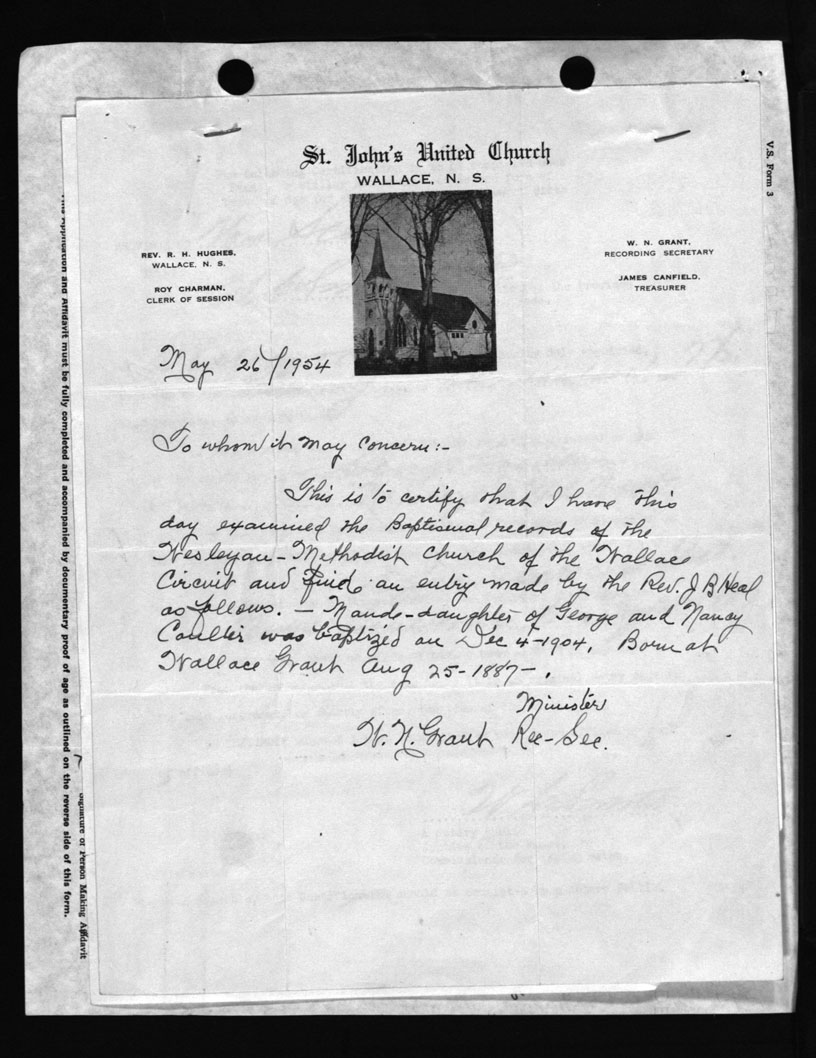 St. John's United Church
WALLACE, N. S.
REV. R. H. HUGHES,
WALLACE, N. S.
ROY CHARMAN,
CLERK OF SESSION
W. N. GRANT,
RECORDING SECRETARY
JAMES CANFIELD,
TREASURER
May 26/1954
To whom it may concern:-
This is to certify that I have this
day examined the Baptismal records of the
Wesleyan-Methodist Church of the Wallace
Circuit and find an entry made by the Rev. J B Heal
as follows. - Maude-daughter of George and Nancy
Coulter was baptized on Dec 4-1904. Born at
Wallace Grant Aug 25-1887-.
Minister
W. N. Grant Rec-Sec.
V.S. Form 3
Application and Affidavit must be fully completed and accompanied by documentary proof of age as outlined on the reverse side of this form.
Signature of Person Making Affidavit